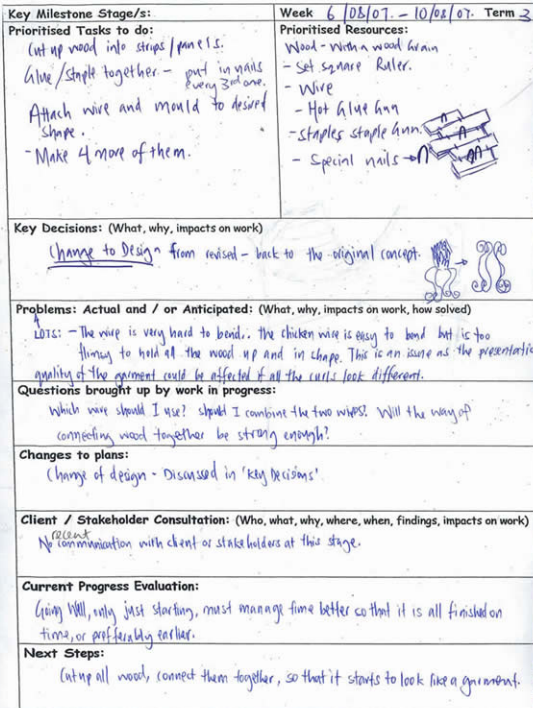 Key Milestone Stage/s:
Week 6/08/07. - 10/08/07. Term 3
Prioritised Tasks to do:
Cut up wood into strips/panels.
Glue/staple together - put in nails
every 3rd one.
Attach wire and mould to desired
shape.
- Make 4 more of them.
Prioritised Resources:
Wood - With a wood grain
- Set square Ruler.
- Wire
- Hot Glue Gun
- Staples staple Gun.
- Special nails →
Key Decisions: (What, why, impacts on work)
Change to Design from revised - back to the original concept.
Problems: Actual and / or Anticipated: (What, why, impacts on work, how solved)
LOTS: - The wire is very hard to bend.. the chicken wire is easy to bend but is too
flimsy to hold all the wood up and in shape. This is an issue as the presentatio
quality of the garment could be affected if all the curls look different.
Questions brought up by work in progress:
Which wire should I use? should I combine the two wires? Will the way of
connecting wood together be strong enough?
Changes to plans:
Change of design - Discussed in 'Key Decisions'.
Client / Stakeholder Consultation: (Who, what, why, where, when, findings, impacts on work)
No recent communication with client or stakeholders at this stage.
Current Progress Evaluation:
Going Well, only just starting, must manage time better so that it is all finished on
time, or prefferably earlier.
Next Steps:
Cut up all wood, connect them together, so that it starts to look like a garment.